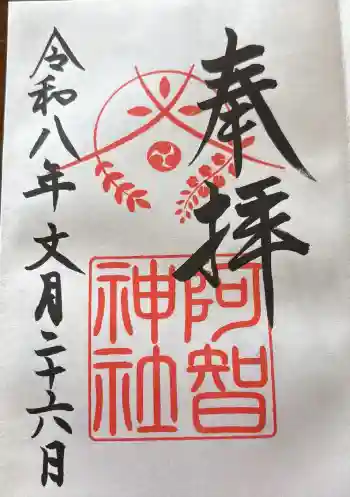 奉拝
阿智
神社
令和八年文月二十六日